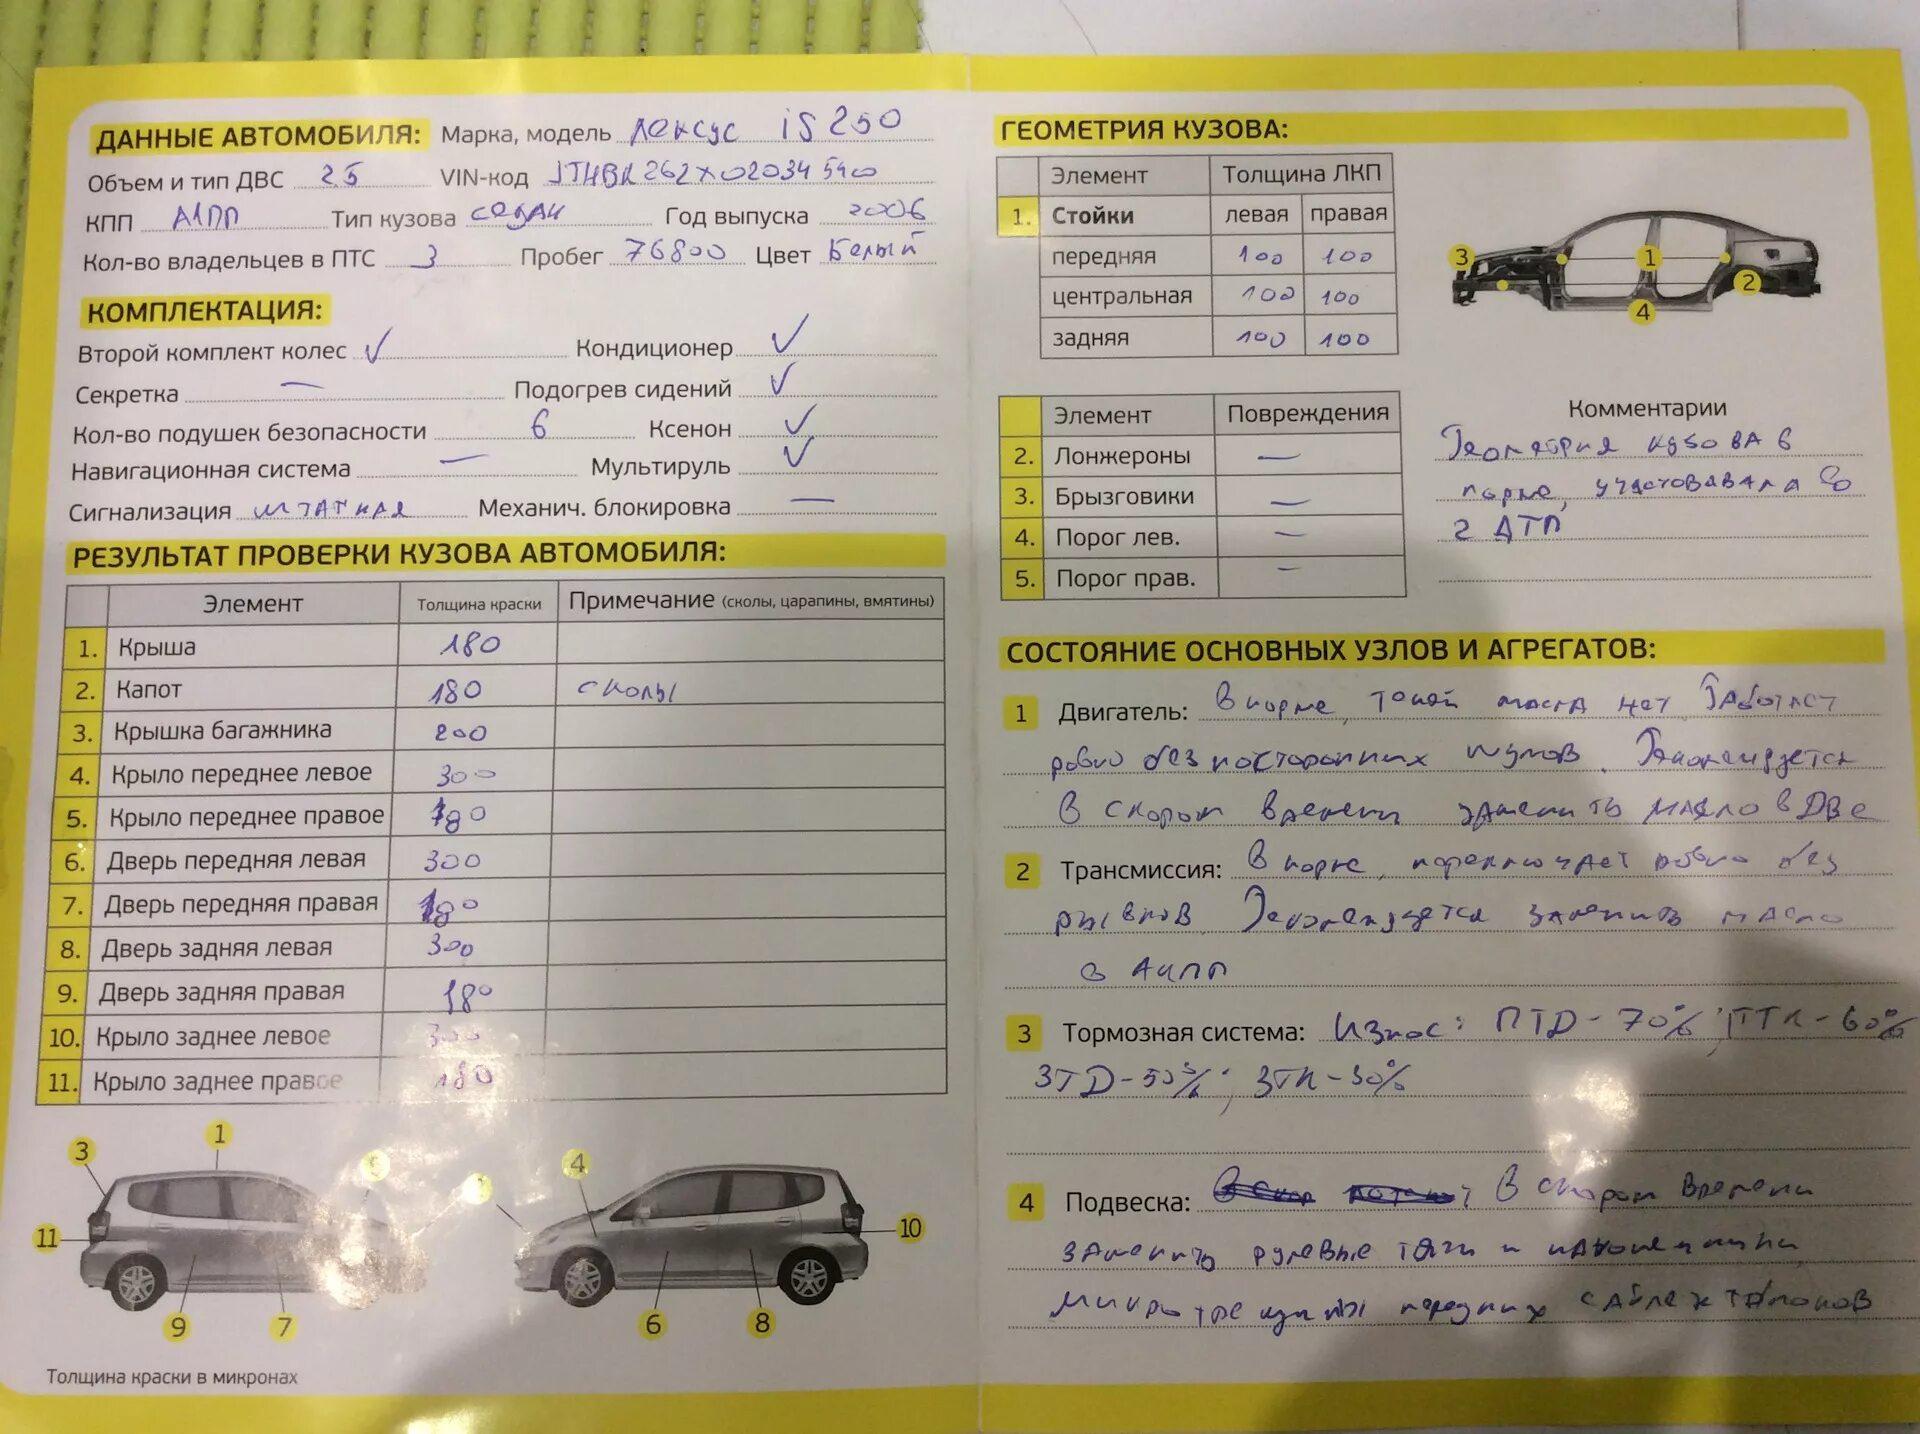 ДАННЫЕ АВТОМОБИЛЯ: Марка, модель Лексус iS 250
Объем и тип ДВС 2.5 VIN-код
КПП АКПП Тип кузова седан Год выпуска 2006
Кол-во владельцев в ПТС 3 Пробег 76800 Цвет Белый
КОМПЛЕКТАЦИЯ:
Второй комплект колес ✓ Кондиционер ✓
Секретка — Подогрев сидений ✓
Кол-во подушек безопасности 6 Ксенон ✓
Навигационная система — Мультируль ✓
Сигнализация штатная Механич. блокировка —
РЕЗУЛЬТАТ ПРОВЕРКИ КУЗОВА АВТОМОБИЛЯ:
Элемент Толщина краски Примечание (сколы, царапины, вмятины)
1. Крыша 180
2. Капот 180 сколы
3. Крышка багажника 200
4. Крыло переднее левое 300
5. Крыло переднее правое 180
6. Дверь передняя левая 300
7. Дверь передняя правая 180
8. Дверь задняя левая 300
9. Дверь задняя правая 180
10. Крыло заднее левое 300
11. Крыло заднее правое 180
3 1 4
11 10
9 7 6 8
Толщина краски в микронах
ГЕОМЕТРИЯ КУЗОВА:
Элемент Толщина ЛКП
1. Стойки левая правая
передняя 100 100
центральная 100 100
задняя 100 100
3 1 2 4
Элемент Повреждения
2. Лонжероны —
3. Брызговики —
4. Порог лев. —
5. Порог прав. —
Комментарии
Геометрия кузова в
норме, участвовала
2 ДТП
СОСТОЯНИЕ ОСНОВНЫХ УЗЛОВ И АГРЕГАТОВ:
1 Двигатель: В норме, течей масла нет. Работает
ровно без посторонних шумов. Рекомендуется
в скором времени заменить масло в ДВС
2 Трансмиссия: В норме, переключает ровно без
рывков. Рекомендуется заменить масло
в АКПП
3 Тормозная система: Износ: ПТД-70%; ПТК-60%
ЗТД-50%; ЗТК-30%
4 Подвеска: В скором времени
заменить рулевые тяги и наконечники,
микротрещины передних сайлентблоков